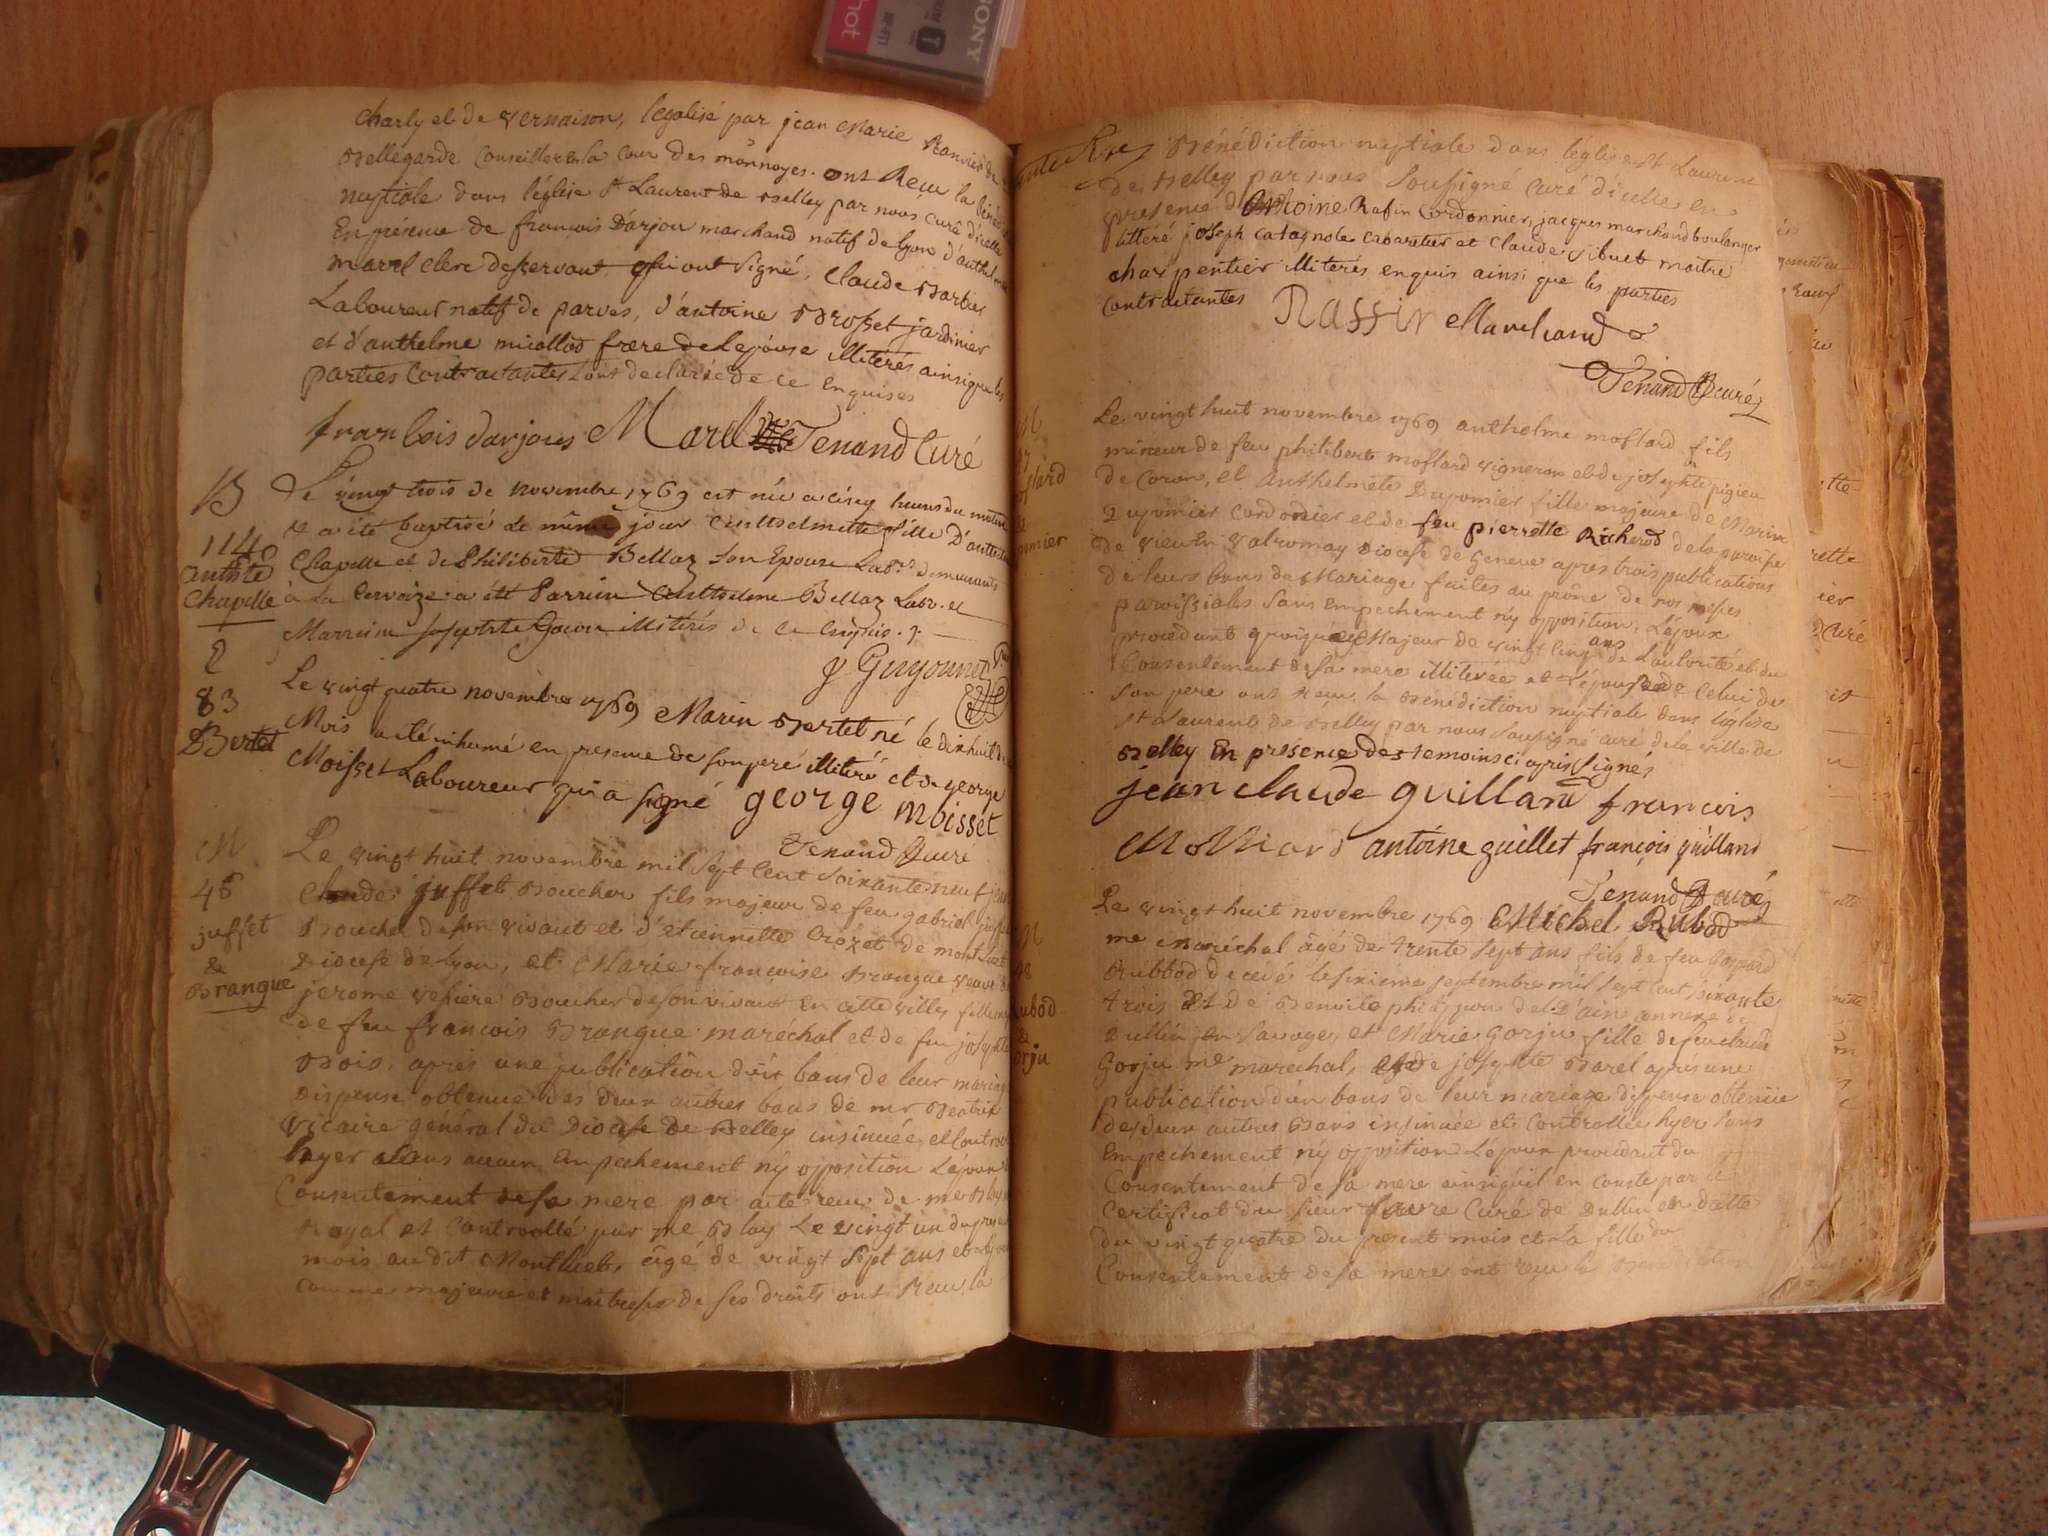 SONY
charly et de vernaison, legalisé par jean Marie Ranvier de
Bellegarde Conseiller en la Cour des monnoyes. ont Reçu la Béné
nuptiale dans l'église St Laurent de Belley par nous curé d'icelle
En présence de françois Darjou marchand natif de lyon d'anthelme
marel clerc desservant qui ont signé, Claude Barbier
Laboureur natif de parves, d'antoine Brosset jardinier
et d'anthelme micollod frere de lepouse illiterés ainsique les
parties Contractantes de ce Enquises
franCois darjous Marel Tenand Curé
B
114
anthte
Chapelle
Le vingt trois de novembre 1769 est née a cinq heures du matin
& a été baptisé le même jour Anthelmette fille D'anthelme
Chapelle et de Philiberte Bellaz son Epouse Labrs demeurants
à la Cervaize a été Parrein Anthelme Bellaz Labr. et
Marreine josephte Gocon illiterés de ce Enquis.
J Guyonnet
83
Bertet
Le vingt quatre novembre 1769 Marin Bertet né le dix huit du
Mois a été inhumé en presence de son pere illiteré et de george
Moisset Laboureur qui a signé george moisset
Tenand Curé
M
46
juffet
&
Brangue
Le vingt huit novembre mil sept Cent soixante neuf jean
Claude juffet Boucher fils majeur de feu gabriel juffet
Boucher de son vivant et d'étiennette Crozet de montluel
Diocese de lyon, et Marie françoise Brangue veuve de
jerome vesiere Boucher de son vivant En cette ville, fille
de feu françois Brangue maréchal et de feu josephte
Bois, après une publication d'un bans de leur mariage
Dispense obtenue des deux autres bans de mr
Vicaire général du Diocese de Belley insinuée et Controllée
hyer sans aucun Empechement ny opposition Lepoux
Consentement de sa mere par acte reçu de me Blay
Royal et Controllé par me Blay Le vingt un du present
mois audit Montluel, âgé de vingt sept ans et
comme majeure et maitresse de ses droits ont Reçu la
Bénédiction nuptiale dans l'église St Laurent
de Belley par nous soussigné Curé d'icelle en
presence d'Antoine Rafin Cordonnier, jacques marchand boulanger
litteré joseph catagnole Cabaretier et Claude Sibuet maitre
charpentier illiterés enquis ainsi que les parties
Contractantes Rassin Marchand
Tenand Curé
M
47
mollard
&
Dupomier
Le vingt huit novembre 1769 anthelme mollard fils
mineur de feu philibert mollard vigneron et de josephte pigieu
de Coron, et Anthelmete Dupomier fille majeure de Marin
Dupomier Cordonier et de feu pierrette Richerod de la paroisse
de vieu En valromay Diocese de Geneve apres trois publications
de leurs bans de Mariage faites au prône de nos messes
paroissiales sans empechement ny opposition, Lepoux
procedant quoique Majeur de vingt Cinq ans de L'autorité et du
Consentement de sa mere illiterée et Lépouse de Celui de
son pere ont Reçu la Bénédiction nuptiale dans l'église
St Laurent de Belley par nous soussigné curé de la ville de
Belley En presence des temoins ci apres signés
jean claude guilland françois
Mollard antoine guillet françois guilland
Tenand Curé
M
48
Rubod
&
Gorju
Le vingt huit novembre 1769 Michel Rubod
me maréchal âgé de trente sept ans fils de feu gaspard
Rubbod decedé le sixieme septembre mil sept Cent soixante
trois et de Benoite annexe de
Dullin en Savoye, et Marie Gorju fille de feu claude
Gorju me marechal, et de josephte Borel après une
publication d'un bans de leur mariage dispense obtenüe
des deux autres Bans insinuée et Controllée hyer sans
Empechement ny opposition Lépoux procedant du
Consentement de sa mere ainsi qu'il en conste par le
Certificat du sieur favre Curé de Dullin en datte
du vingt quatre du present mois et La fille du
Consentement de sa mere ont reçu la Benediction